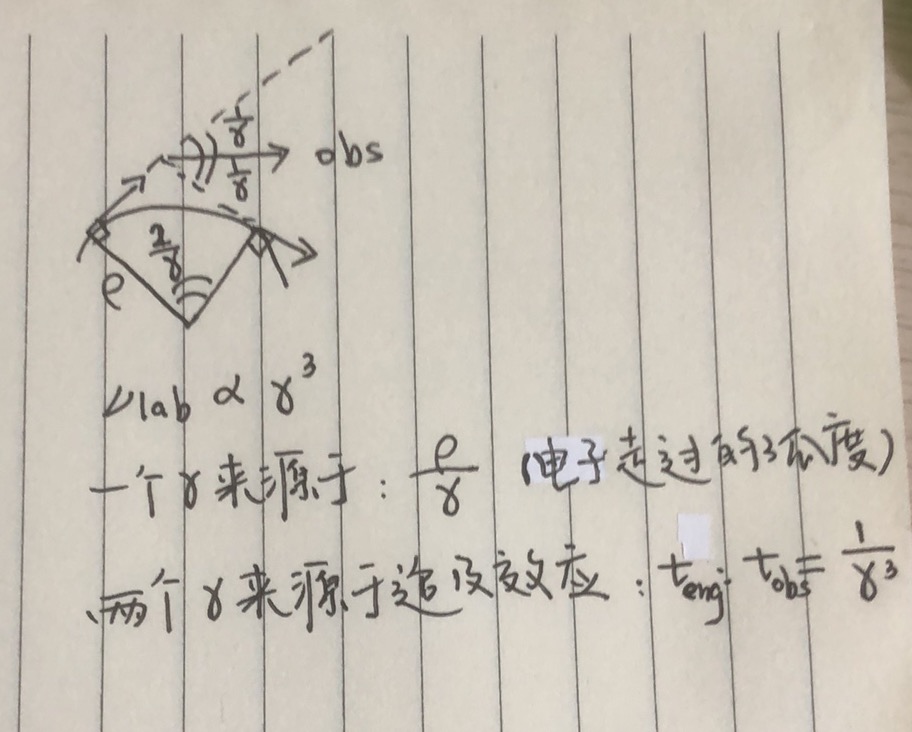 1/γ
obs
1/γ
2/γ
ρ
ν_lab ∝ γ³
一个γ来源于: ρ/γ (电子走过的弧度)
两个γ来源于追及效应: t_eng- t_obs = 1/γ³